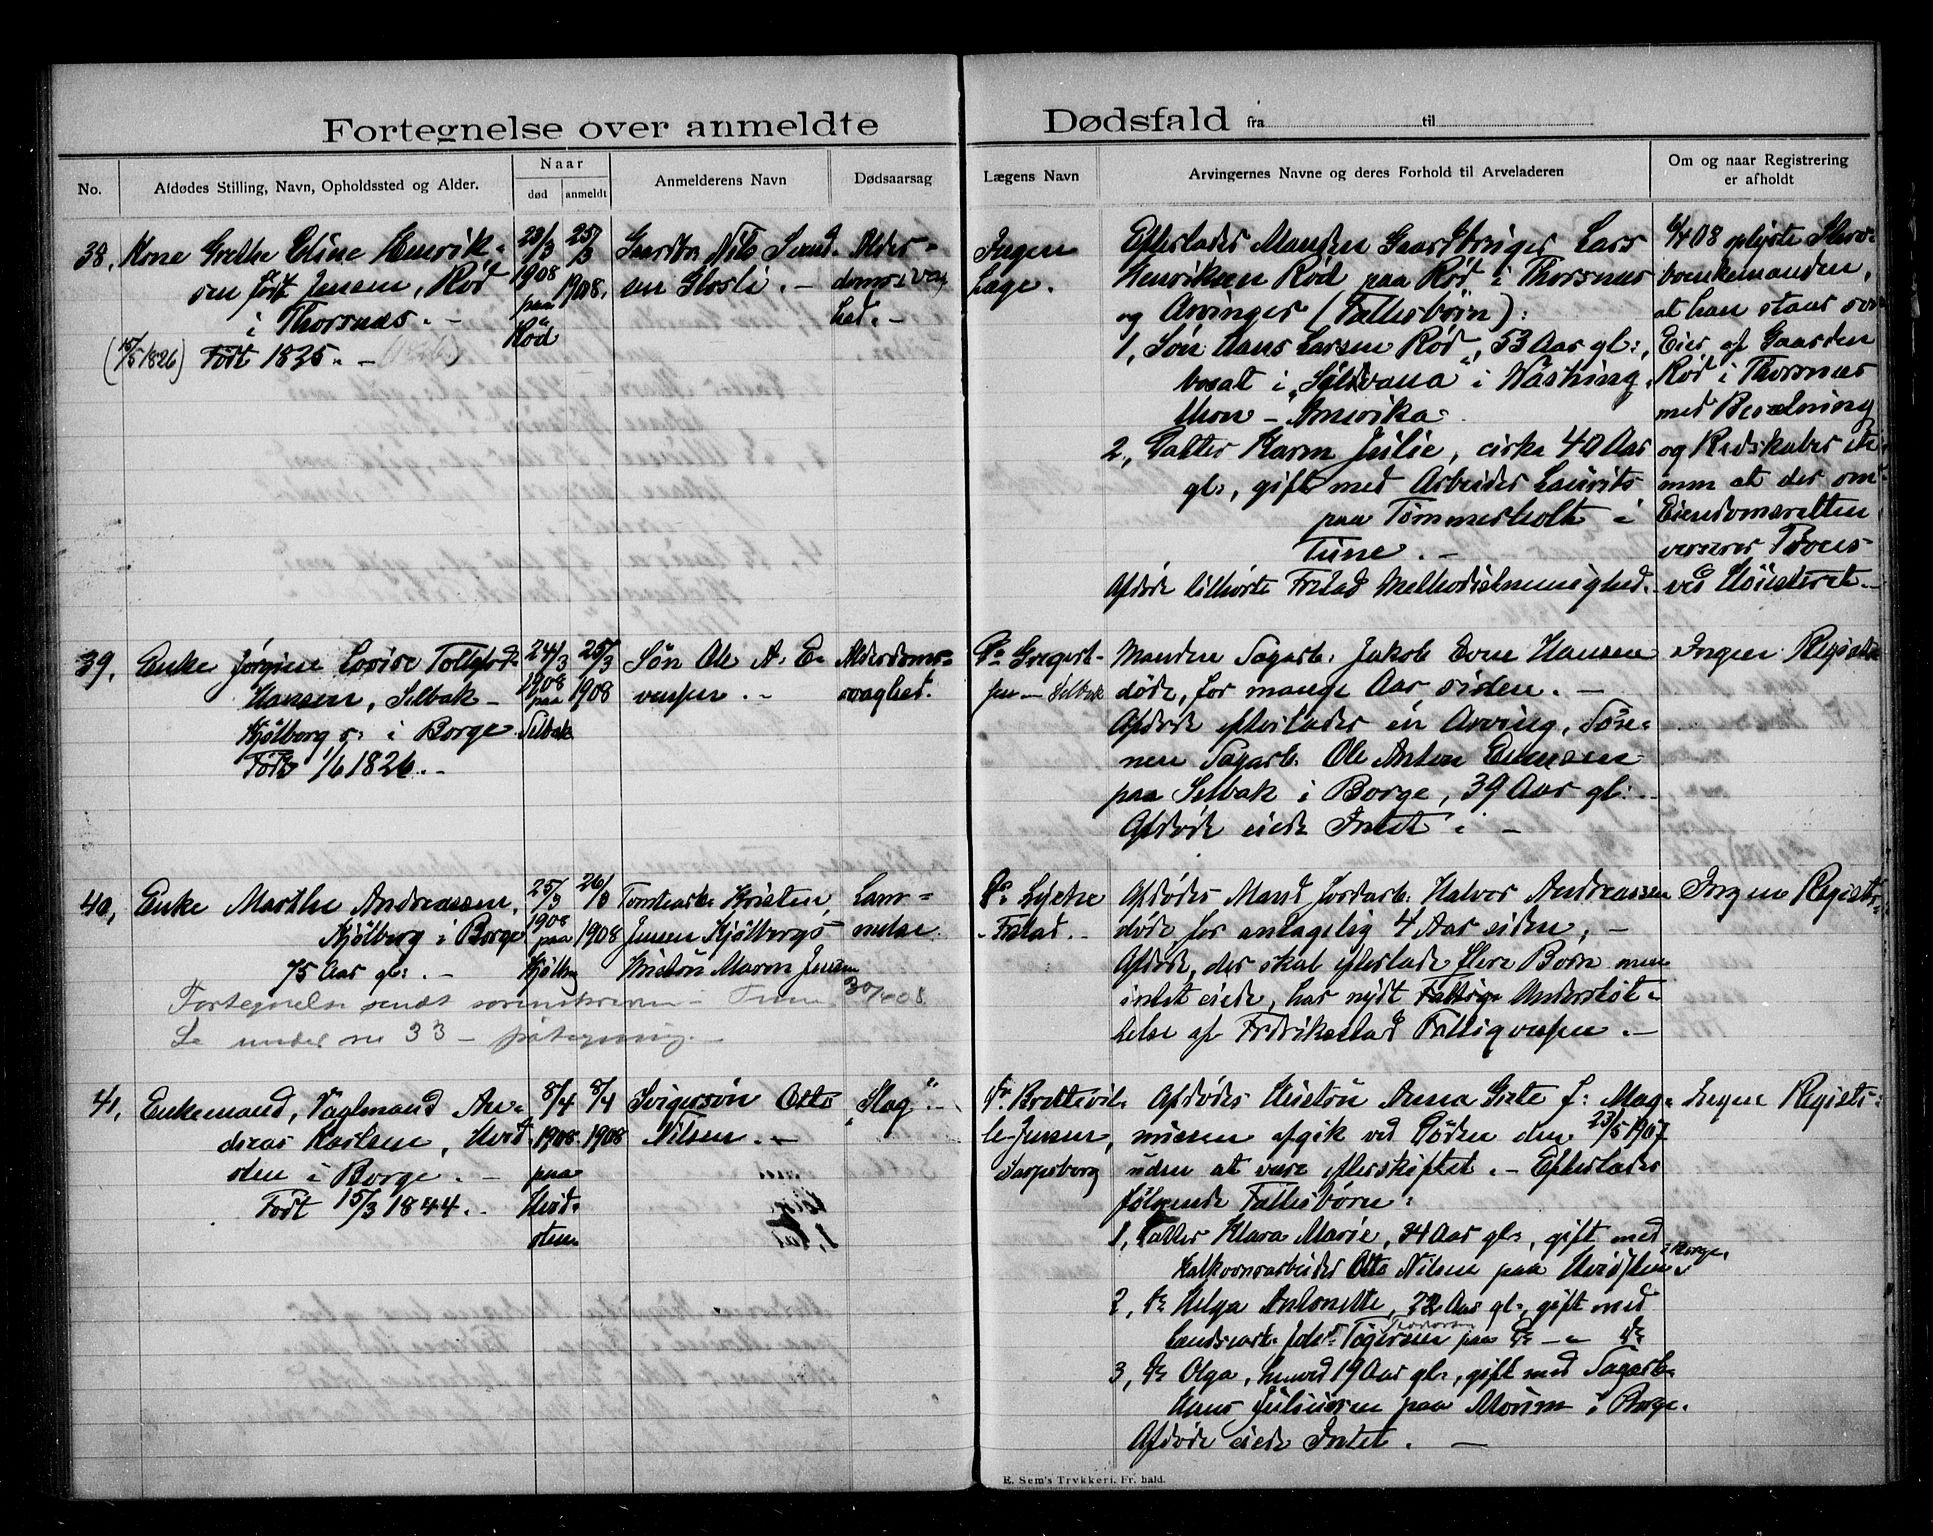 Fortegnelse over anmeldte Dødsfald fra til
No.
Afdødes Stilling, Navn, Opholdssted og Alder.
Naar
død
anmeldt
Anmelderens Navn
Dødsaarsag
Lægens Navn
Arvingernes Navne og deres Forhold til Arveladeren
Om og naar Registrering
er afholdt
38,
Kone Grethe Eline Henrik-
sen født Jensen, Rød
i Thorsnæs. -
(15/5 1826) Født 1825. -
23/3
1908
paa
Rød
25/3
1908.
Gaardbr. Nils Svend-
sen Glosli. -
Alder-
domssvag
hed. -
Ingen
Læge.
Efterlader Manden Gaardbruger Lars
Henriksen Rød paa Rød i Thorsnæs
og Arvinger (Fællesbørn):
1, Søn Hans Larsen Rød, 53 Aar gl.,
bosat i "Sildvana" i Washing
thon - Amerika.
2, Datter Karen Julie, cirka 40 Aar
gl., gift med Arbeider Laurits
paa Tømmerholt i
Tune. -
Afdøde tilhørte Fr.stad Methodistmenighed. -
6/4 08 oplyste Skevs-
boenkemanden,
at han staar som
Eier af Gaarden
Rød i Thorsnæs
med Besætning
og Redskaber
men at der om
Eiendomsretten
verserer Proces
ved Høiesteret. -
39,
Enke Jørgine Lovise Tollefsd.
Hansen, Selbak -
Kjølberg i Borge
Født 1/6 1826. -
24/3
1908
paa
Selbak
25/3
1908
Søn Ole A. E-
vensen. -
Alderdoms-
svaghed.
Dr. Gregert-
sen - Selbak
Manden Sagarb. Jakob Even Hansen
døde, for mange Aar siden. -
Afdøde efterlader en Arving, Søn-
nen Sagarb. Ole Anton Evensen
paa Selbak i Borge, 39 Aar gl. -
Afdøde eiede Intet. -
Ingen Registr.
40,
Enke Marthe Andreassen,
Kjølberg i Borge
75 Aar gl. -
25/3
1908
paa
Kjølberg
26/3
1908
Tomtearb. Kristen
Jensen Kjølbergs
Hustru Maren Jensen
Lam-
melse.
Dr. Lyche
Fr.stad. -
Afdødes Mand Jordarb. Halvor Andreassen
døde for antagelig 4 Aar siden, -
Afdøde, der skal efterlade flere Børn men
intet eiede, har nydt Fattig Understøt-
telse af Fredrikstad Fattigvæsen. -
Ingen Registr.
Fortegnelse sendt sorenskriveren i Tune 30/4 08.
Se under no 33 - påtegning. -
41,
Enkemand, Vaglmand An-
dreas Karlsen, Hvid-
sten i Borge. -
Født 15/3 1844. -
8/4
1908
paa
Hvid-
sten
8/4
1908
Svigersøn Otto
Nilsen. -
"Slag". -
Dr. Brettevil-
le Jensen,
Sarpsborg
Afdødes Hustru Anna Grete f. Mag-
nusen afgik ved Døden den 23/5 1907
uden at være efterskiftet. - Efterlader
følgende Fællesbørn:
1, Datter Klara Marie, 34 Aar gl., gift med
Kalkovnsarbeider Otto Nilsen paa Hvidsten i Borge.
2, Do Helga Antonette, 22 Aar gl., gift med
Landsarb. Johs. Togersen paa Do - " Do
3, Do Olga, henved 19 Aar gl., gift med Sagarb.
Hans Juliussen paa Moum i Borge.
Afdøde eiede Intet. -
Ingen Registr.
E. Sem's Trykkeri, Fr. hald.